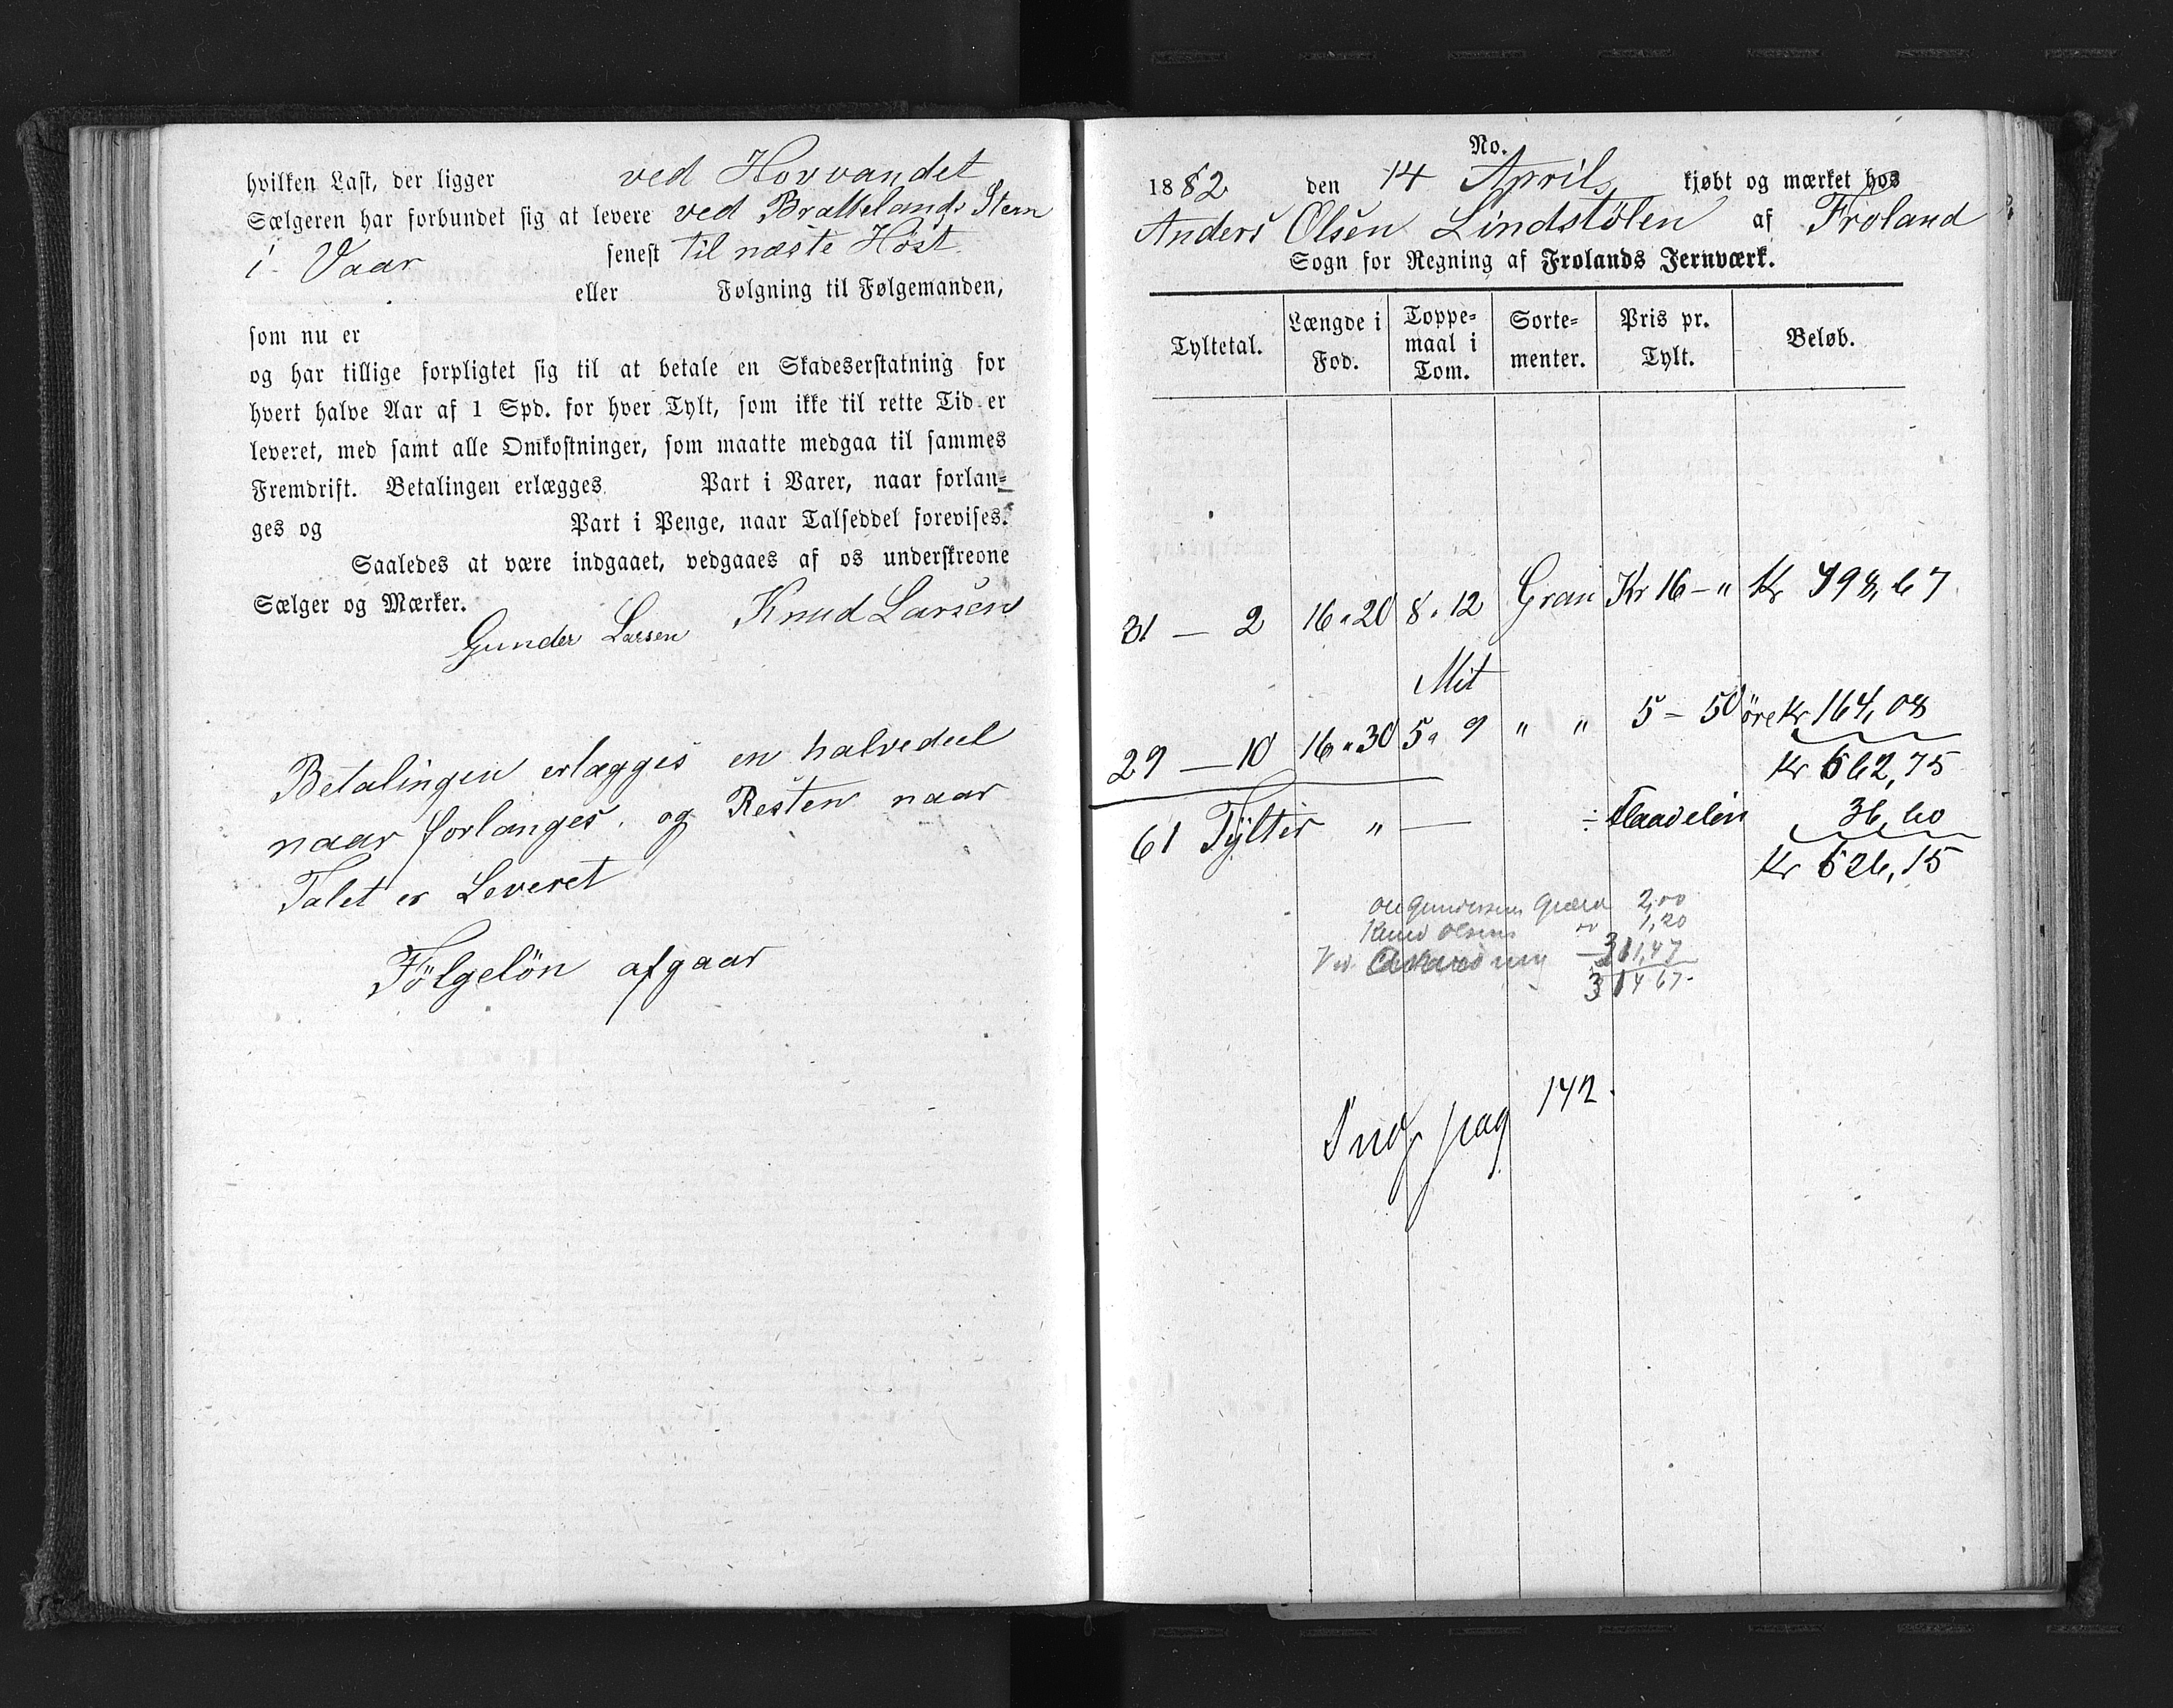 hvilken Last, der ligger ved Hovvandet
Sælgeren har forbundet sig at levere ved Brattelands Stem
i Vaar senest til næste Høst
eller Følgning til Følgemanden,
som nu er
og har tillige forpligtet sig til at betale en Skadeserstatning for
hvert halve Aar af 1 Spd. for hver Tylt, som ikke til rette Tid er
leveret, med samt alle Omkostninger, som maatte medgaa til sammes
Fremdrift. Betalingen erlægges Part i Varer, naar forlan=
ges og Part i Penge, naar Talseddel forevises.
Saaledes at være indgaaet, vedgaaes af os underskreone
Sælger og Mærker.
Gunder Larsen Knud Larsen
Betalingen erlægges en halvedeel
naar forlanges. og Resten naar
Talet er Leveret
Fölgelön afgaar
No.
1882 den 14 April kjøbt og mærket hos
Anders Olsen Lindstölen af Froland
Sogn for Regning af Frolands Jernværk.
Tyltetal. Længde i Fod. Toppe= maal i Tom. Sorte= menter. Pris pr. Tylt. Beløb.
31 — 2 16 " 20 8 " 12 Gran Kr 16 — " Kr 498,67
Mit
29 — 10 16 " 30 5 " 9 " " 5 — 50 öre Kr 164,08
Kr 662,75
61 Tylter " — ÷ Flaadelön 36,60
Kr 626,15
Ole Gundersen 2,00
Knud Olsens " 1,20
311,47
314 67
Ind pag 142.